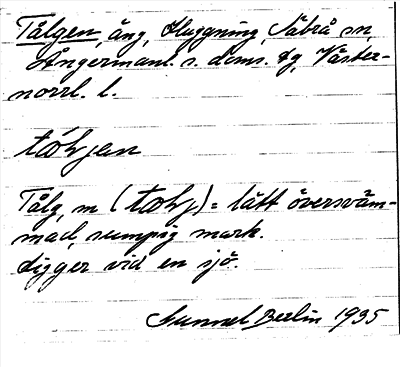 Tålgen, äng, Huggning, Säbrå sn,
Ångermanl. s. doms. tg, Väster-
norrl. l.
Tålg, m = lätt översväm-
mad, sumpig mark.
Ligger vid en sjö.
Gunnel Berlin 1935